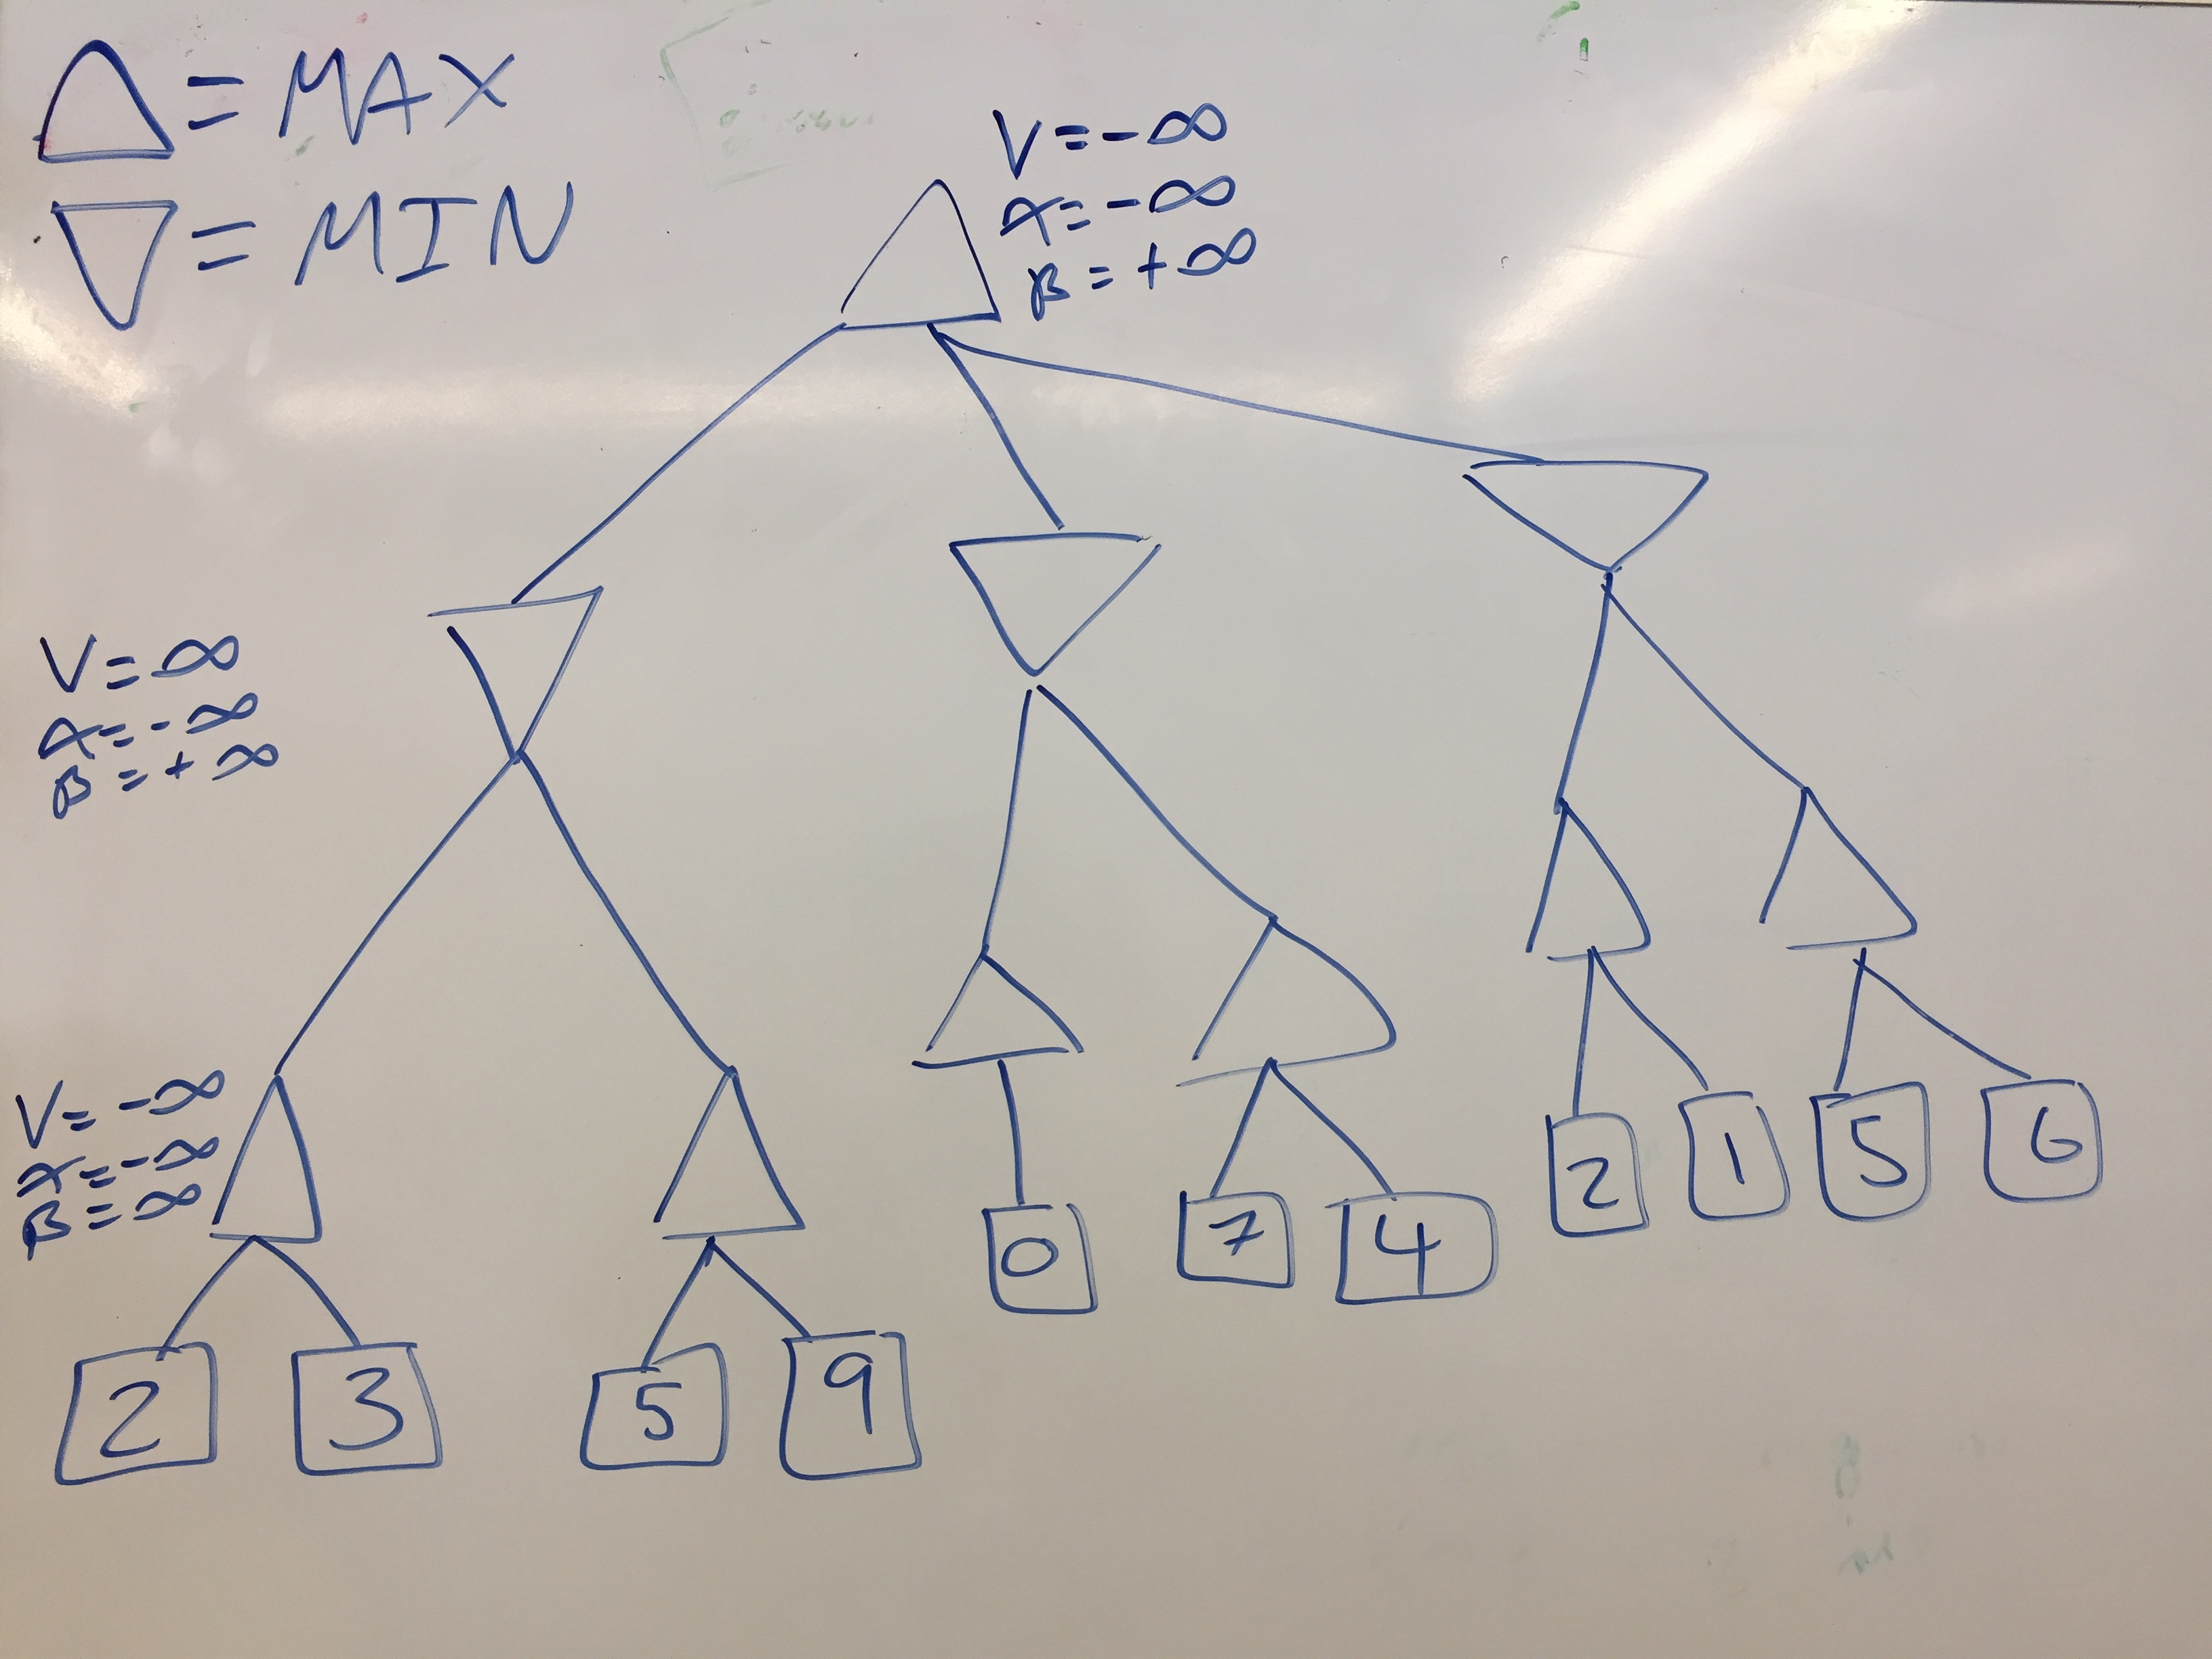 △ = MAX
▽ = MIN
V = -∞
α = -∞
β = +∞
V = ∞
α = -∞
β = + ∞
V = -∞
α = -∞
β = ∞
2 1 5 6
0 7 4
2 3 5 9